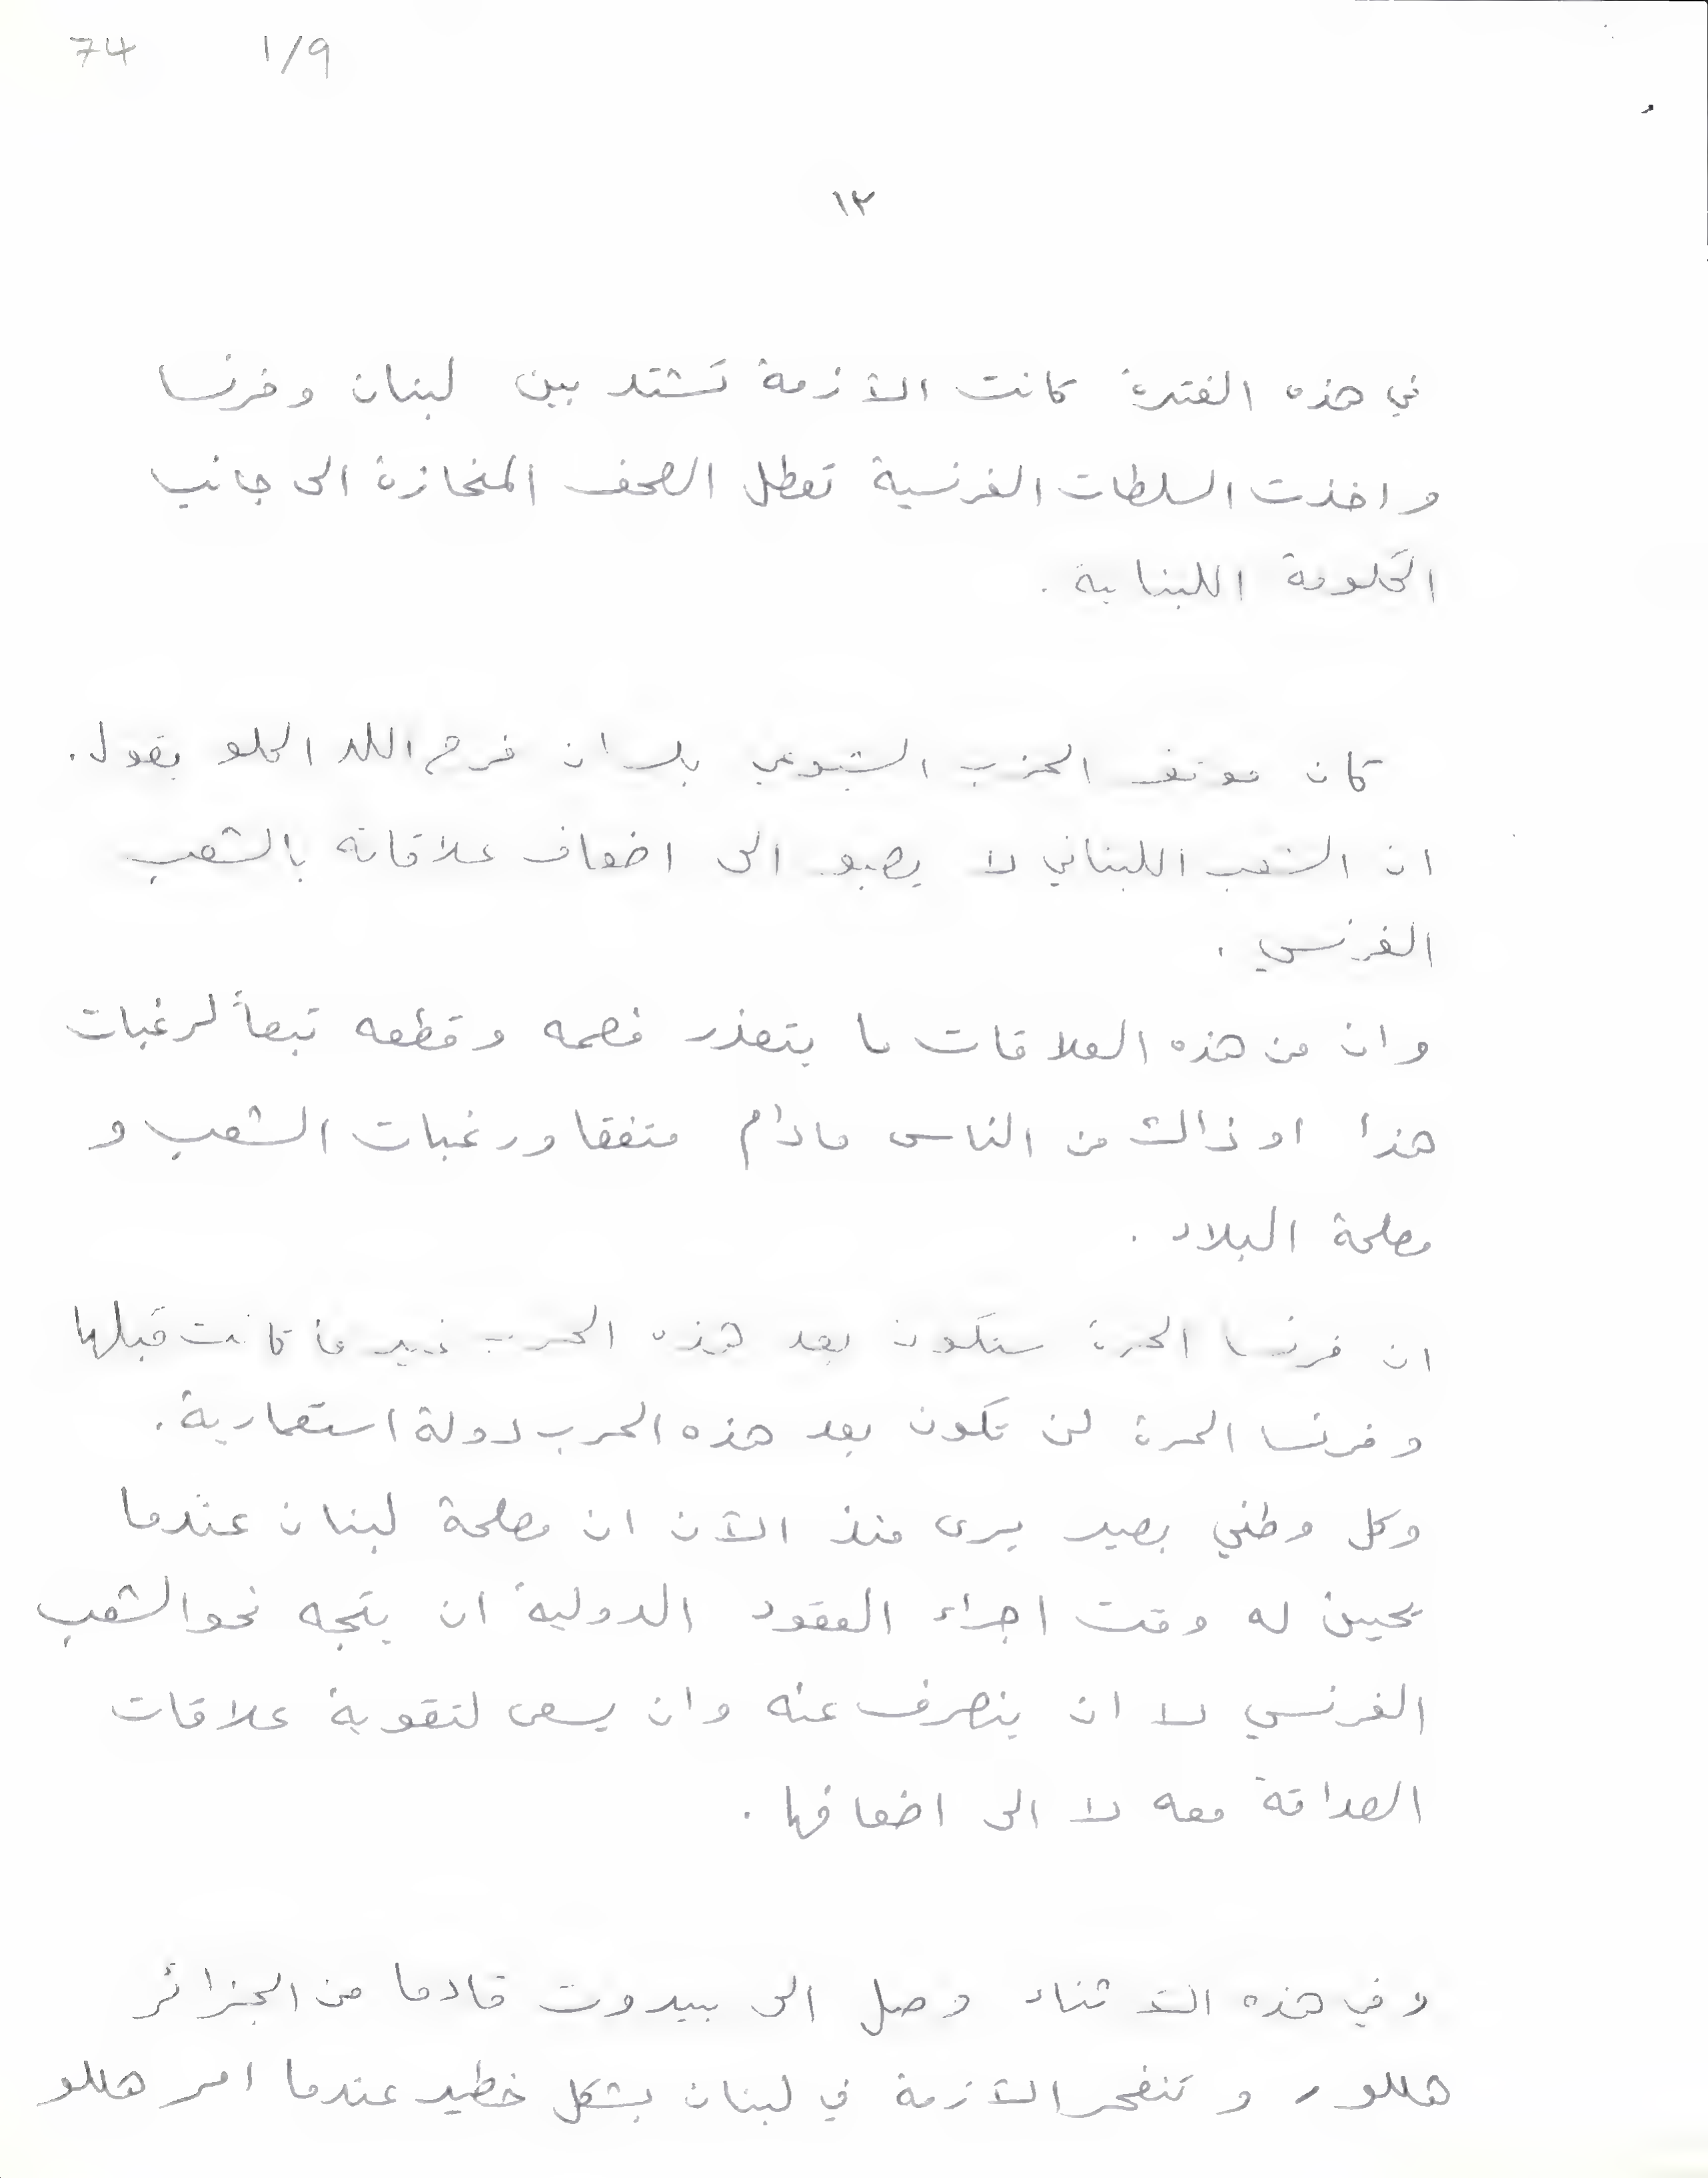 74 1/9
١٢
في هذه الفترة كانت الأزمة تشتد بين لبنان وفرنسا
واخذت السلطات الفرنسية تعطل الصحف المنحازة الى جانب
الحكومة اللبنانية .
كان موقف الحزب الشيوعي بلسان فرج الله الحلو يقول .
ان الشعب اللبناني لا يصبو الى اضعاف علاقاته بالشعب
الفرنسي .
وان من هذه العلاقات ما يتعذر فصمه وقطعه تبعاً لرغبات
هذا او ذاك من الناس مادام متفقا ورغبات الشعب و
مصلحة البلاد .
ان فرنسا الحرة ستكون بعد هذه الحرب غير ما كانت قبلها
وفرنسا الحرة لن تكون بعد هذه الحرب دولة استعمارية .
وكل وطني بصير يرى منذ الآن ان مصلحة لبنان عندما
يحين له وقت اجراء العقود الدولية ان يتجه نحو الشعب
الفرنسي لا ان ينصرف عنه وان يسعى لتقوية علاقات
الصداقة معه لا الى اضعافها .
وفي هذه الأثناء وصل الى بيروت قادما من الجزائر
هللو ر وتنفجر الأزمة في لبنان بشكل خطير عندما امر هللو